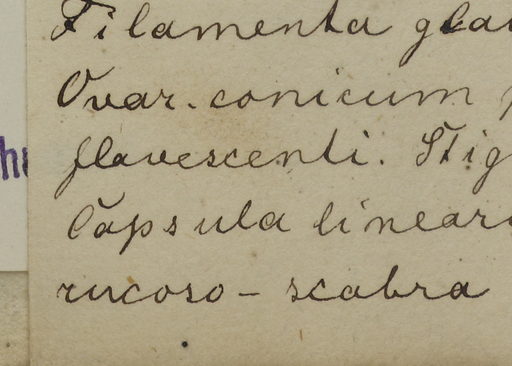 Filamenta gla
Ovar. conicum
flavescenti. Stig
Capsula linear
rucoso - scabra